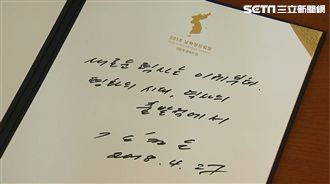 SETN 三立新聞網
2018 남북정상회담
새로운 력사는 이제부터.
평화의 시대, 력사의
출발점에서
김정은
2018. 4. 27